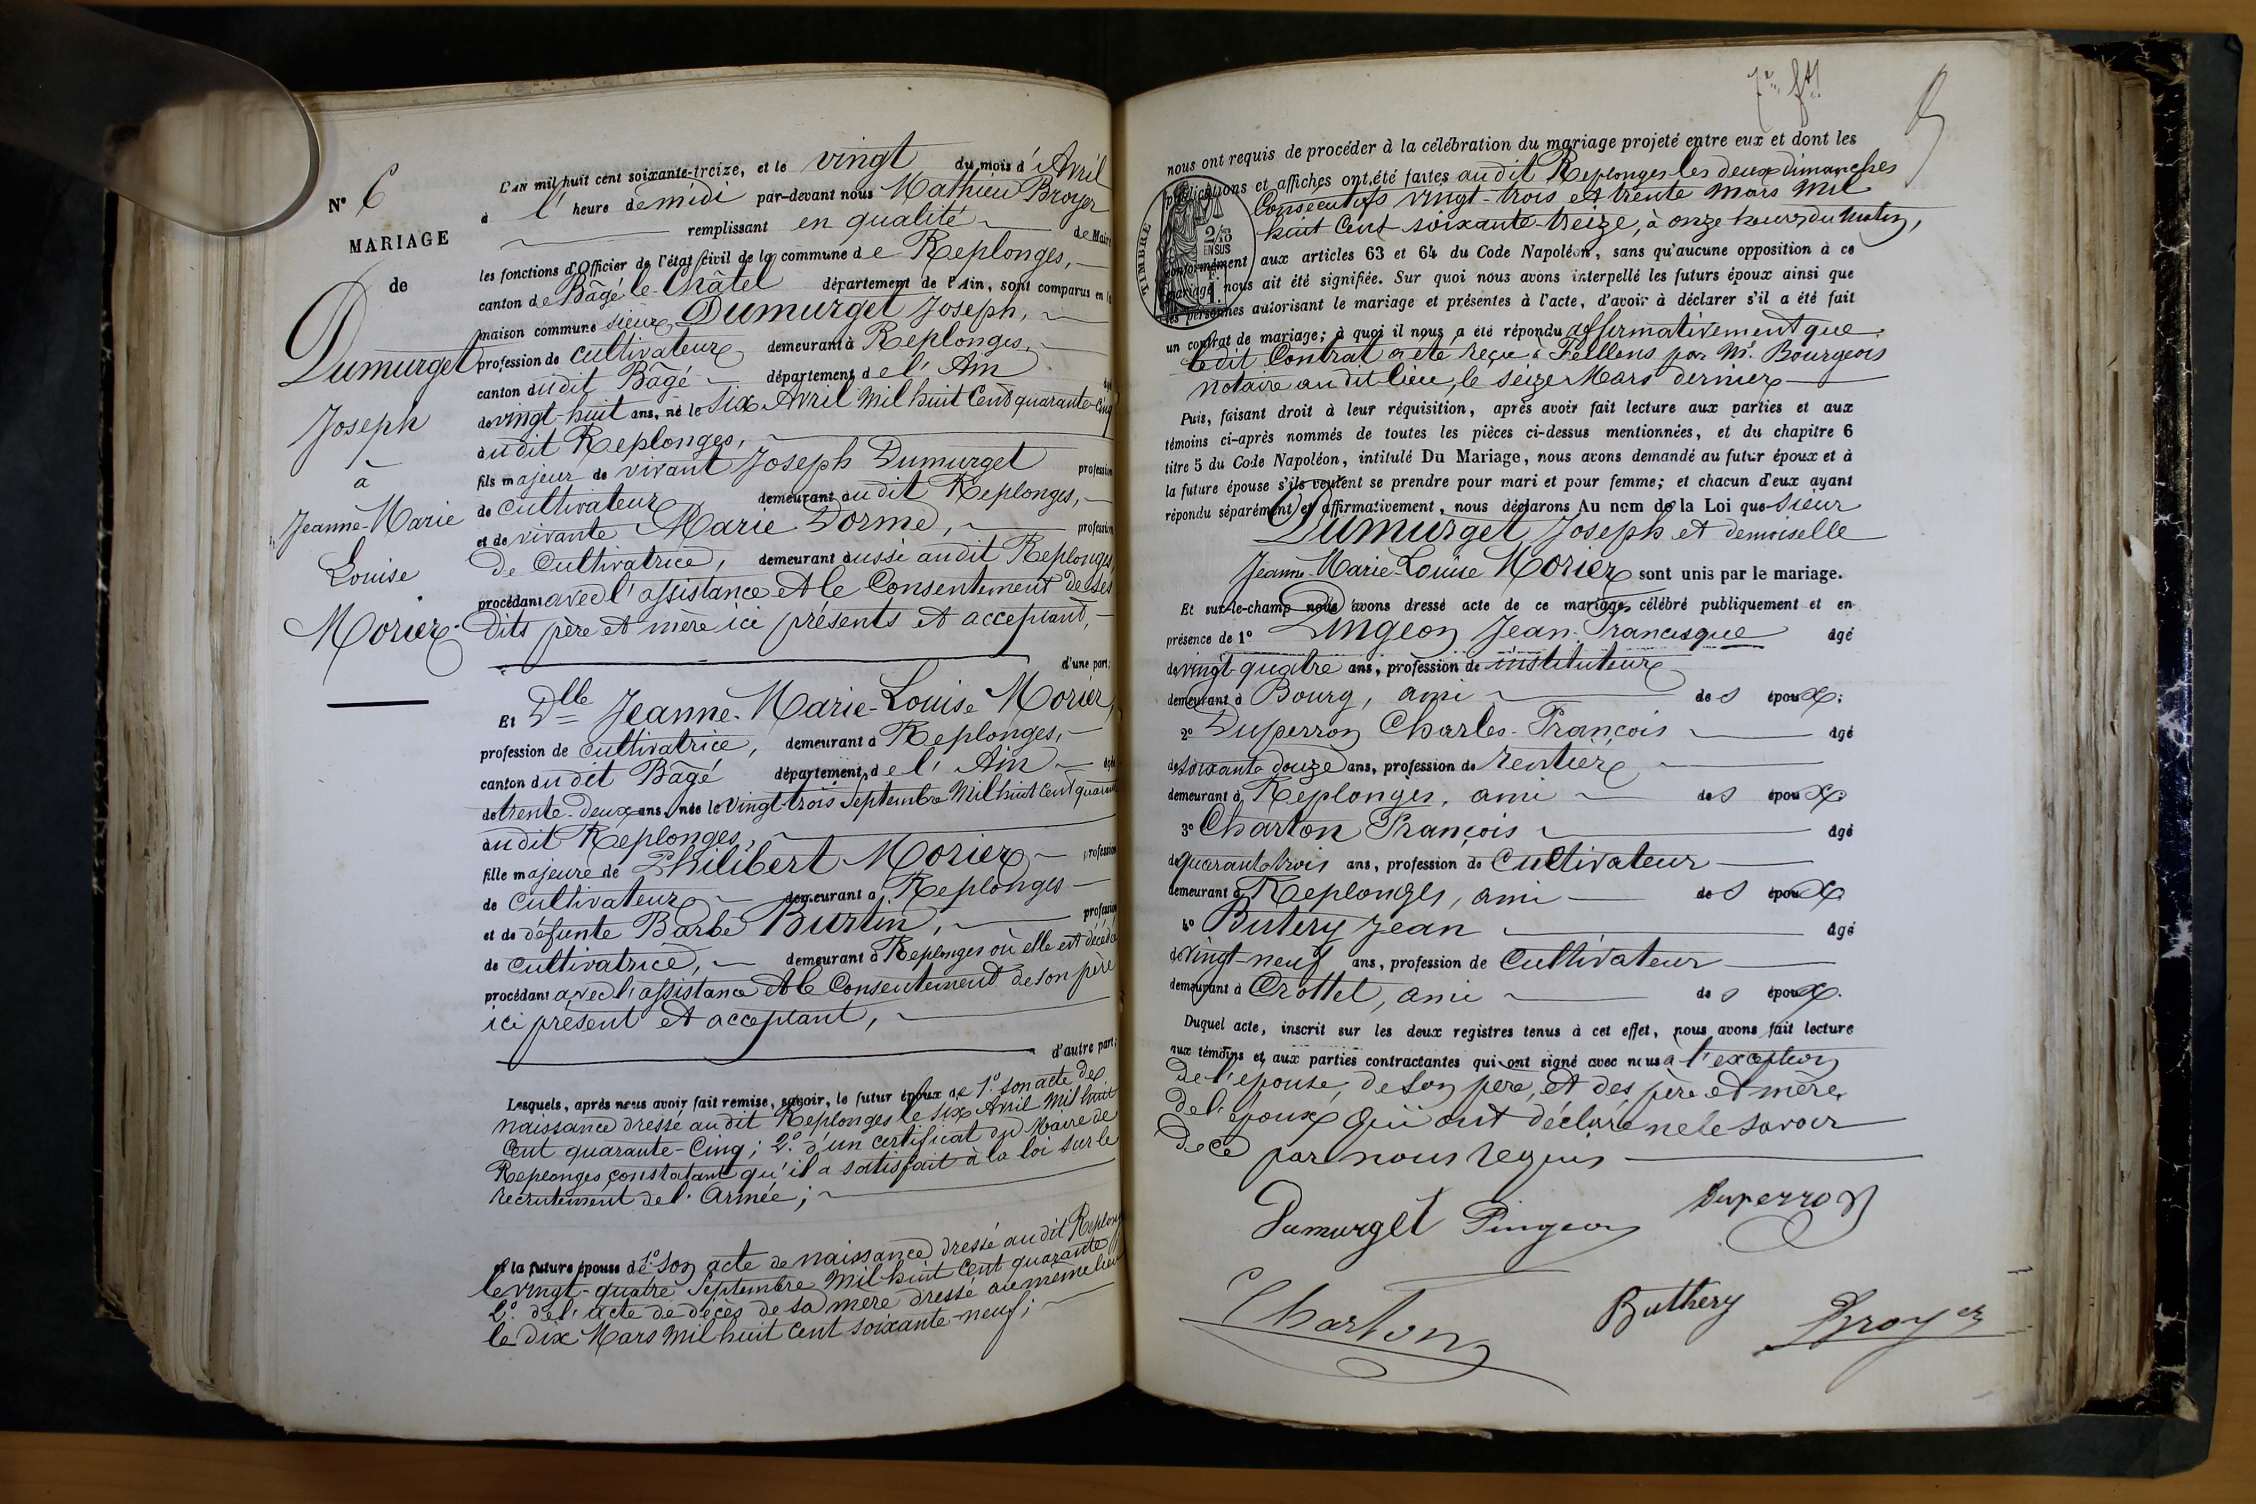 N° 6
MARIAGE
de
Dumurget
Joseph
à
Jeanne-Marie
Louise
Morier.
L'AN mil huit cent soixante-treize, et le vingt du mois d'Avril
à l'heure de midi par-devant nous Mathieu Broyer
remplissant en qualité de Maire
les fonctions d'Officier de l'état civil de la commune de Replonges,
canton de Bâgé-le-Châtel département de l'Ain, sont comparus en la
maison commune sieur Dumurget Joseph,
profession de cultivateur demeurant à Replonges,
canton dudit Bâgé département de l'Ain âgé
de vingt-huit ans, né le six Avril mil huit Cent quarante-cinq
audit Replonges,
fils majeur de vivant Joseph Dumurget profession
de cultivateur demeurant audit Replonges,
et de vivante Marie Dorme, profession
de Cultivatrice, demeurant aussi audit Replonges
procédant avec l'assistance et le Consentement de ses
dits père et mère ici présents et acceptant,
d'une part;
Et Dlle Jeanne-Marie-Louise Morier,
profession de cultivatrice, demeurant à Replonges,
canton dudit Bâgé département de l'Ain âgée
de trente-deux ans, née le vingt-trois Septembre Mil huit Cent quarante
audit Replonges,
fille majeure de Philibert Morier profession
de cultivateur demeurant à Replonges
et de défunte Barbe Burtin, profession
de cultivatrice, demeurant à Replonges où elle est décédée
procédant avec l'assistance et le Consentement de son père
ici présent et acceptant,
d'autre part;
Lesquels, après nous avoir fait remise, savoir, le futur époux de 1° son acte de
naissance dressé audit Replonges le six Avril Mil huit
Cent quarante-Cinq; 2° d'un certificat du Maire de
Replonges constatant qu'il a satisfait à la loi sur le
recrutement de l'Armée;
et la future épouse de 1° son acte de naissance dressé audit Replonges
le vingt-quatre Septembre Mil huit Cent quarante
2° de l'acte de décès de sa mère dressé au même lieu
le dix Mars Mil huit Cent soixante-neuf;
nous ont requis de procéder à la célébration du mariage projeté entre eux et dont les
publications et affiches ont été faites audit Replonges les deux dimanches
Consécutifs vingt-trois et trente Mars Mil
huit Cent soixante-treize, à onze heures du Matin,
conformément aux articles 63 et 64 du Code Napoléon, sans qu'aucune opposition à ce
mariage nous ait été signifiée. Sur quoi nous avons interpellé les futurs époux ainsi que
les personnes autorisant le mariage et présentes à l'acte, d'avoir à déclarer s'il a été fait
un contrat de mariage; à quoi il nous a été répondu affirmativement que
ledit Contrat a été reçu à Feillens par Mr. Bourgeois
notaire audit lieu, le seize Mars dernier
TIMBRE
Puis, faisant droit à leur réquisition, après avoir fait lecture aux parties et aux
témoins ci-après nommés de toutes les pièces ci-dessus mentionnées, et du chapitre 6
titre 5 du Code Napoléon, intitulé Du Mariage, nous avons demandé au futur époux et à
la future épouse s'ils veulent se prendre pour mari et pour femme; et chacun d'eux ayant
répondu séparément et affirmativement, nous déclarons Au nom de la Loi que sieur
Dumurget Joseph et demoiselle
Jeanne-Marie-Louise Morier sont unis par le mariage.
Et sur-le-champ nous avons dressé acte de ce mariage célébré publiquement et en
présence de 1° Pingeon Jean-Francisque âgé
de vingt-quatre ans, profession de instituteur
demeurant à Bourg, ami des époux;
2° Duperron Charles-François âgé
de soixante douze ans, profession de rentier
demeurant à Replonges, ami des époux
3° Charton François âgé
de quarante trois ans, profession de Cultivateur
demeurant à Replonges, ami des époux
4° Butery Jean âgé
de vingt-neuf ans, profession de Cultivateur
demeurant à Crottet, ami des époux.
Duquel acte, inscrit sur les deux registres tenus à cet effet, nous avons fait lecture
aux témoins et aux parties contractantes qui ont signé avec nous à l'exception
de l'épouse, de son père, et des père et mère
de l'époux qui ont déclaré ne le savoir
de ce par nous requis
Dumurget Pingeon Duperron
Charton Buthery Broyer